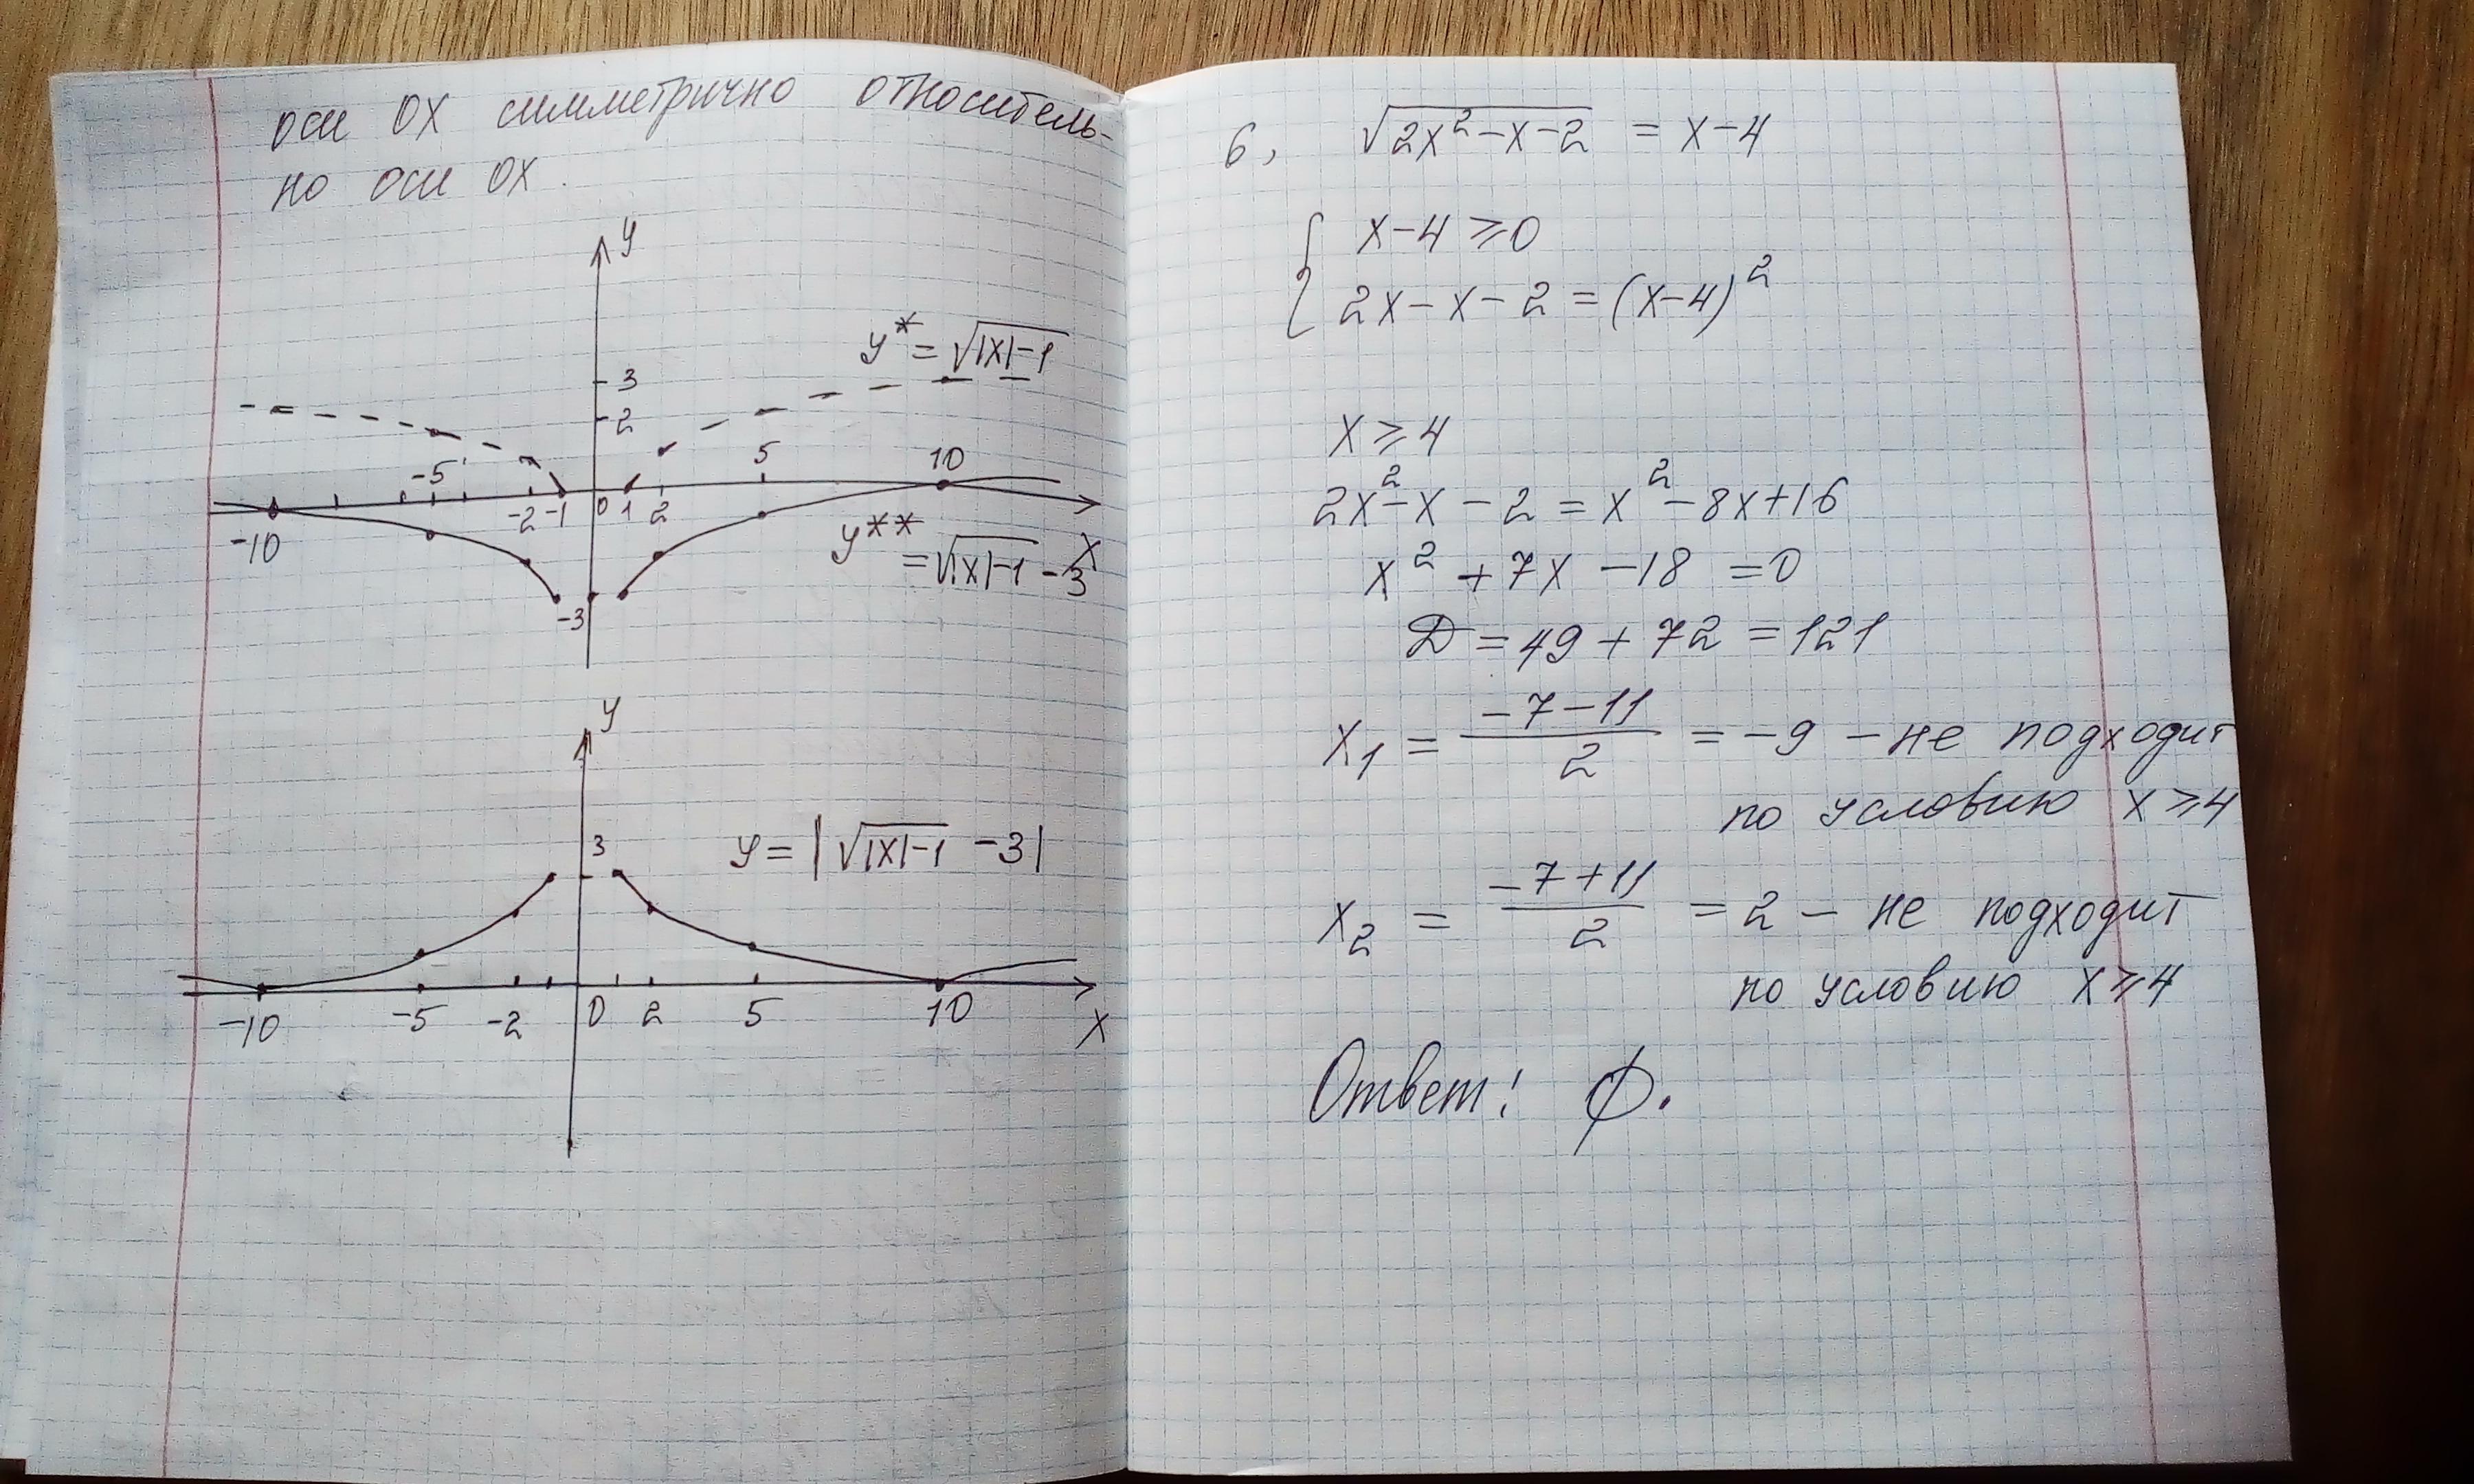 оси ОХ симметрично относитель-
но оси ОХ.
у
y* = √|x|-1
3
2
-5 5 10
-10 -2 -1 0 1 2 x
y**
= √|x|-1 - 3
-3
y
3
y = |√|x|-1 - 3|
-10 -5 -2 0 2 5 10 x
6, √2x²-x-2 = x-4
{ x-4 ⩾ 0
2x-x-2 = (x-4)²
x ⩾ 4
2x²-x-2 = x²-8x+16
x²+7x-18 = 0
Д = 49+72 = 121
x₁ = (-7-11)/2 = -9 - не подходит
по условию x ⩾ 4
x₂ = (-7+11)/2 = 2 - не подходит
по условию x ⩾ 4
Ответ: ∅.